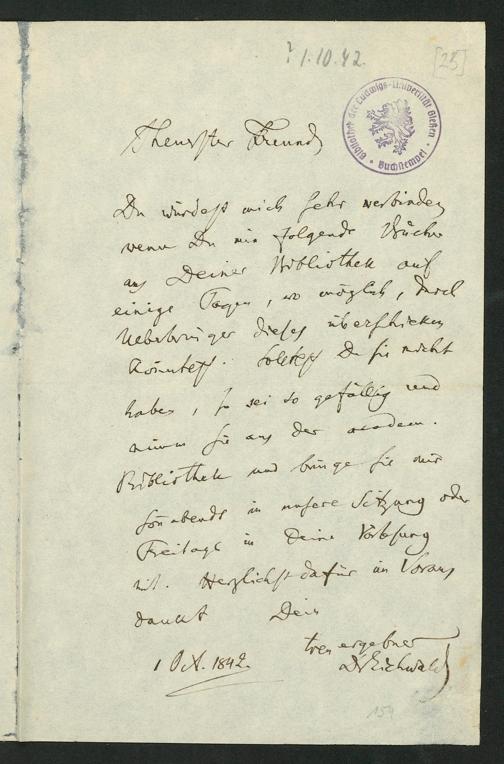 ? 1.10.42.
[25]
Bibliothek der Ludwigs-Universität Gießen
Buchstempel
Theuerster Freund,
Du würdest mich sehr verbinden
wenn Du mir folgende Bücher
aus Deiner Bibliothek auf
einige Tagen, wo möglich, durch
Ueberbringer dieses überschicken
könntest. Solltest Du sie nicht
haben, so sei so gefällig und
nimm sie aus der academ.
Bibliothek und bringe sie mir
Sonabends in unsere Sitzung oder
Freitags in Deine Vorlesung
mit. Herzlichst dafür im Voraus
dankt Dein
treu ergebner
1 Oct. 1842.
Dr Eichwald
154